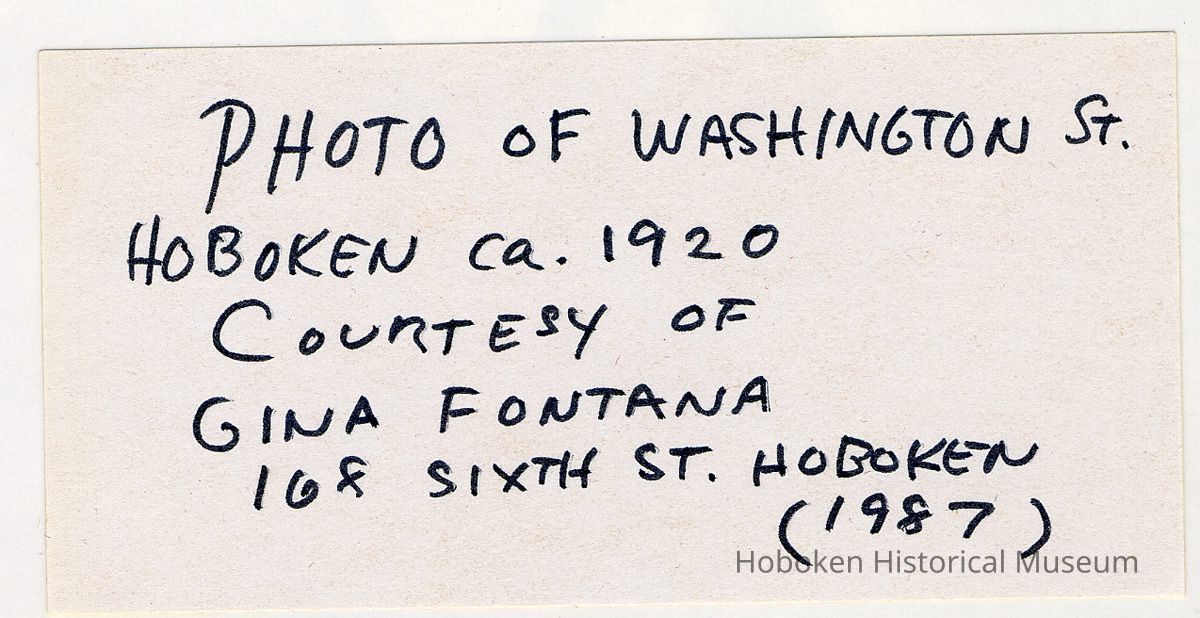 PHOTO OF WASHINGTON St.
HOBOKEN ca. 1920
COURTESY OF
GINA FONTANA
168 SIXTH ST. HOBOKEN
(1987)
Hoboken Historical Museum